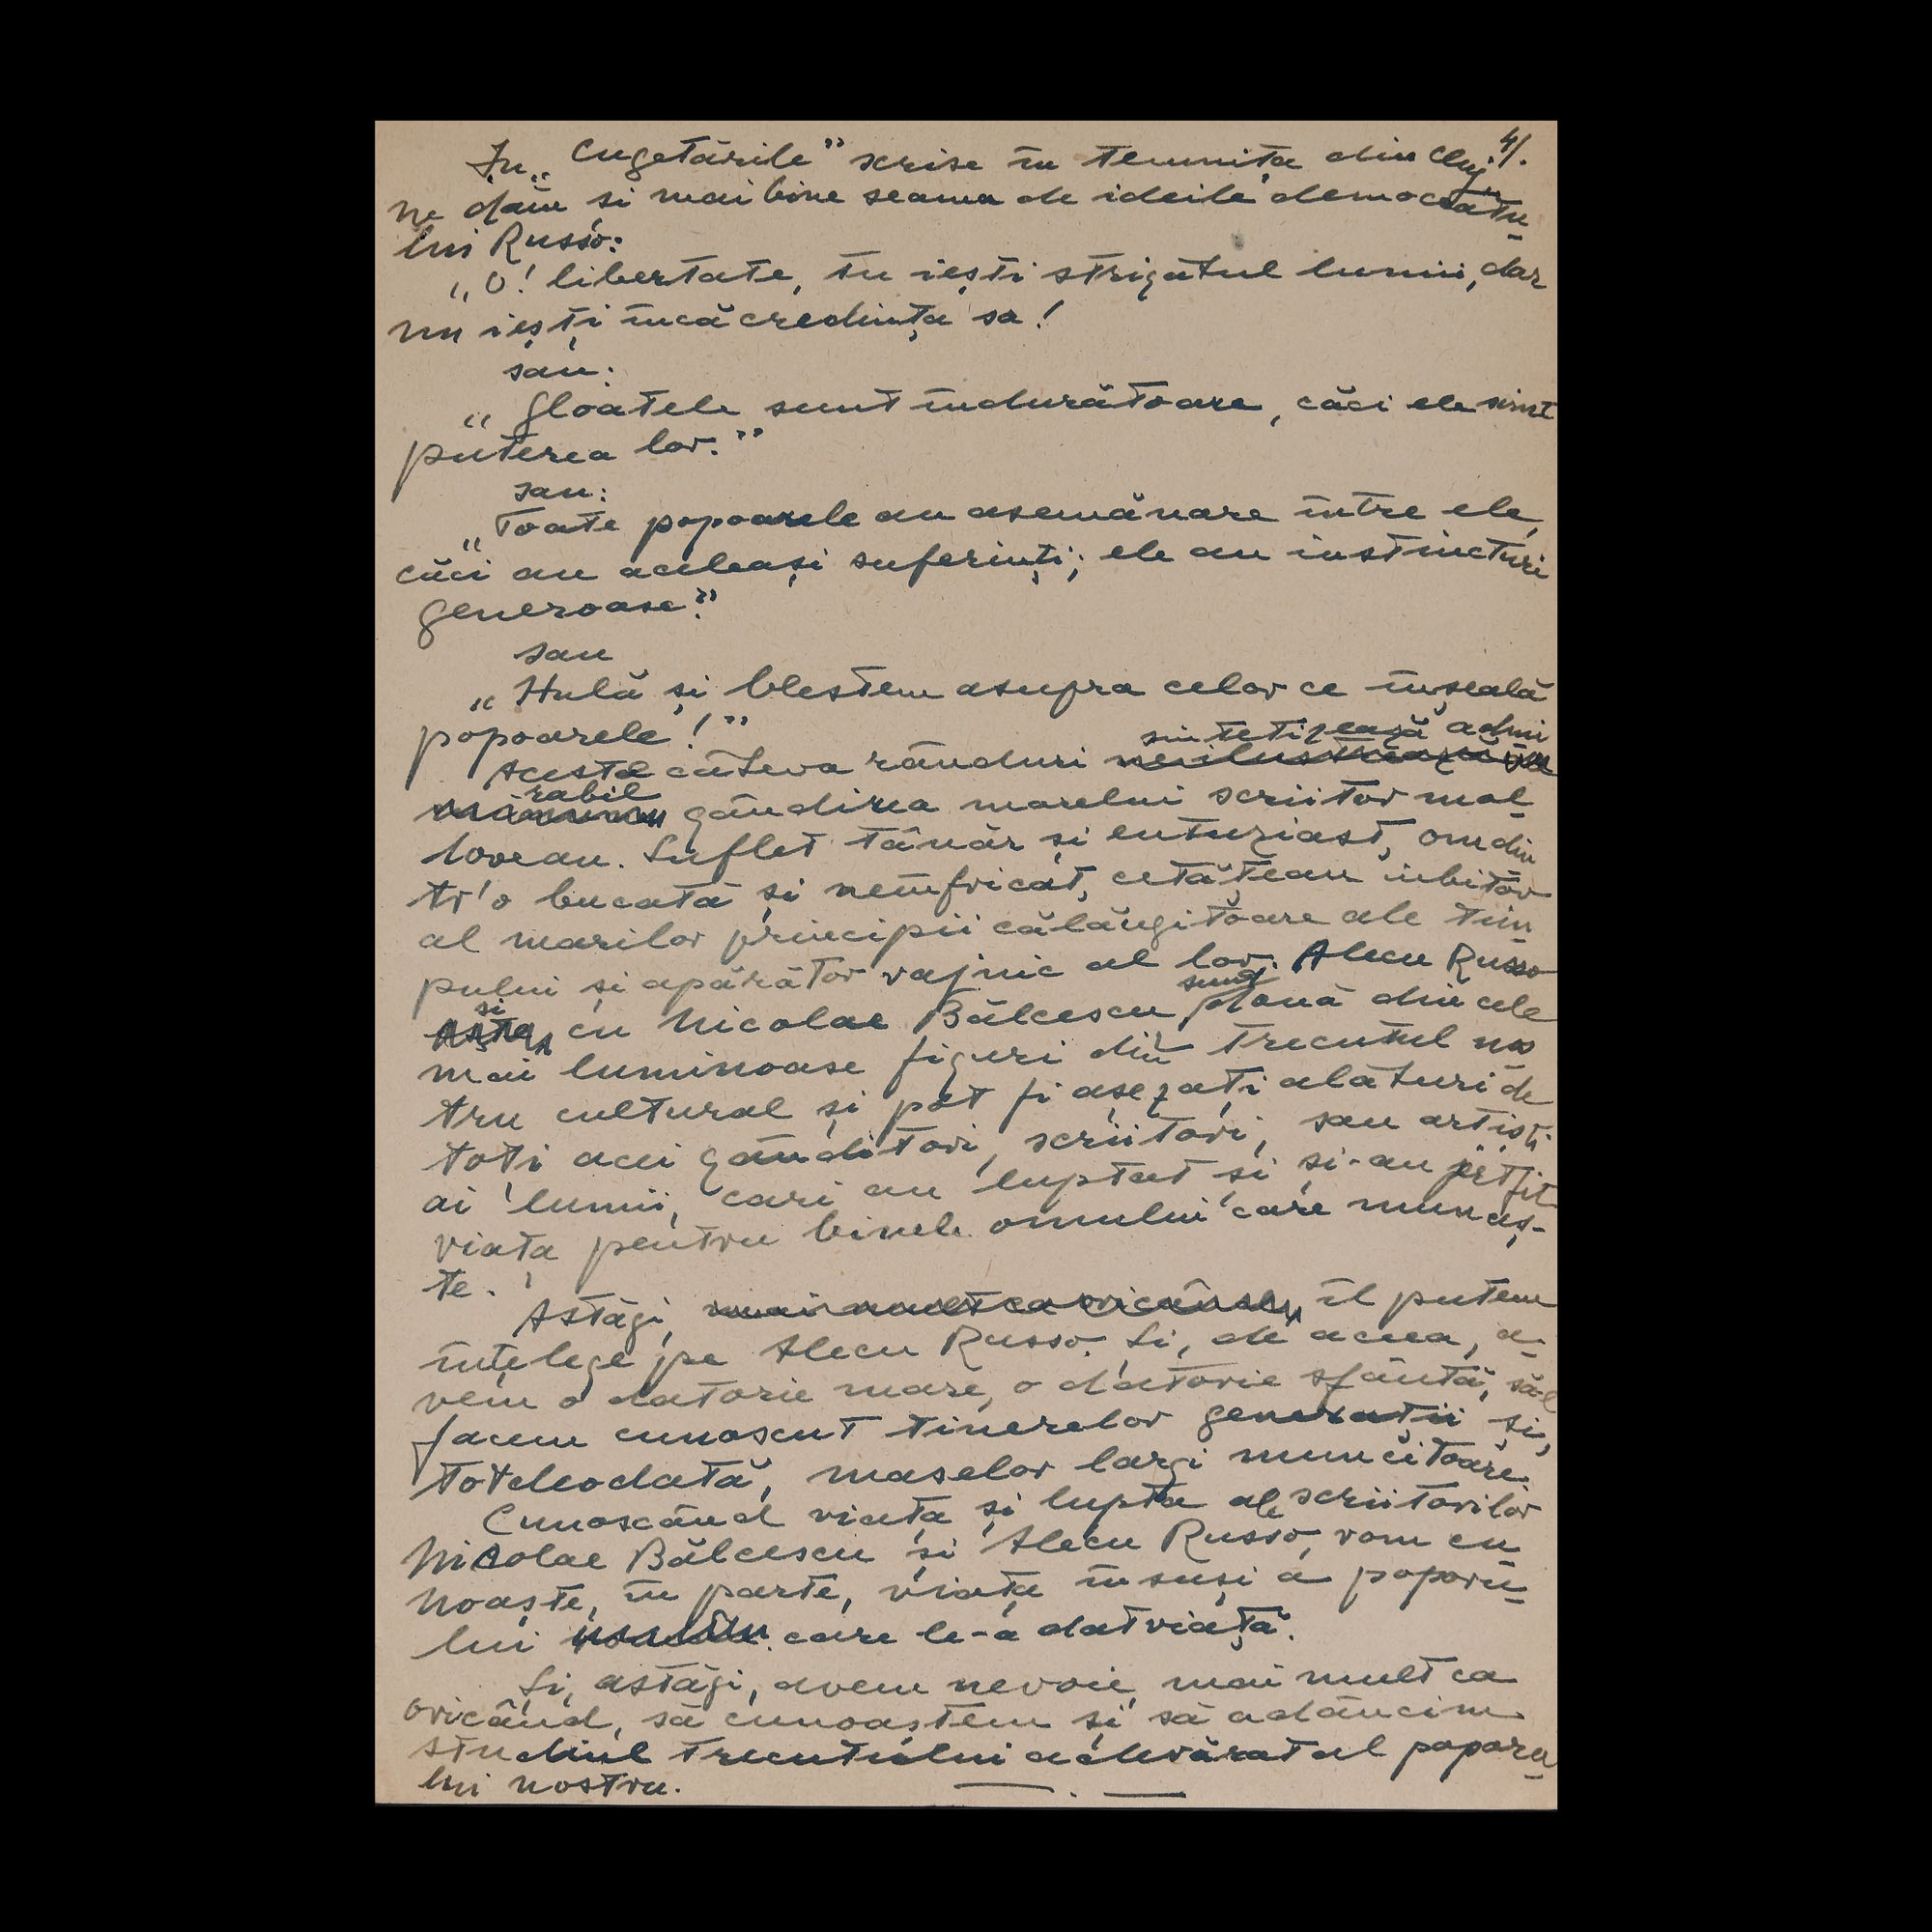 4/.
In „Cugetările” scrise în temnița din Cluj
ne dăm și mai bine seama de ideile democratu-
lui Russo:
„O! libertate, tu iești strigătul lumii, dar
nu iești încă credința sa!
sau:
„Gloatele sunt îndurătoare, căci ele simt
puterea lor.”
sau:
„Toate popoarele au asemănare între ele,
căci au aceleași suferinți; ele au instincturi
generoase”
sau
„Hulă și blestem asupra celor ce înșeală
popoarele!”
sintetizează admi
Aceste câteva rânduri
rabil
gândirea marelui scriitor mol-
dovean. Suflet tânăr și entuziast, om din
tr'o bucată și neînfricat, cetățean iubitor
al marilor principii călăuzitoare ale tim-
pului și apărător vajnic al lor. Alecu Russo
și cu Nicolae Bălcescu sunt două din cele
mai luminoase figuri din trecutul nos
tru cultural și pot fi așezați alături de
toți acei gânditori, scriitori, sau artiști
ai lumii, cari au luptat și și-au jertfit
viața pentru binele omului care munceș-
te.
Astăzi, mai mult ca oricând, îl putem
înțelege pe Alecu Russo. Și, de aceea, a-
vem o datorie mare, o datorie sfântă, să-l
facem cunoscut tinerelor generații și,
totdeodată, maselor largi muncitoare.
Cunoscând viața și lupta ale scriitorilor
Nicolae Bălcescu și Alecu Russo, vom cu
noaște, în parte, viața însuși a poporu-
lui care le-a dat viață.
Și, astăzi, avem nevoie, mai mult ca
oricând, să cunoaștem și să adâncim
studiul trecutului adevărat al poporu-
lui nostru.